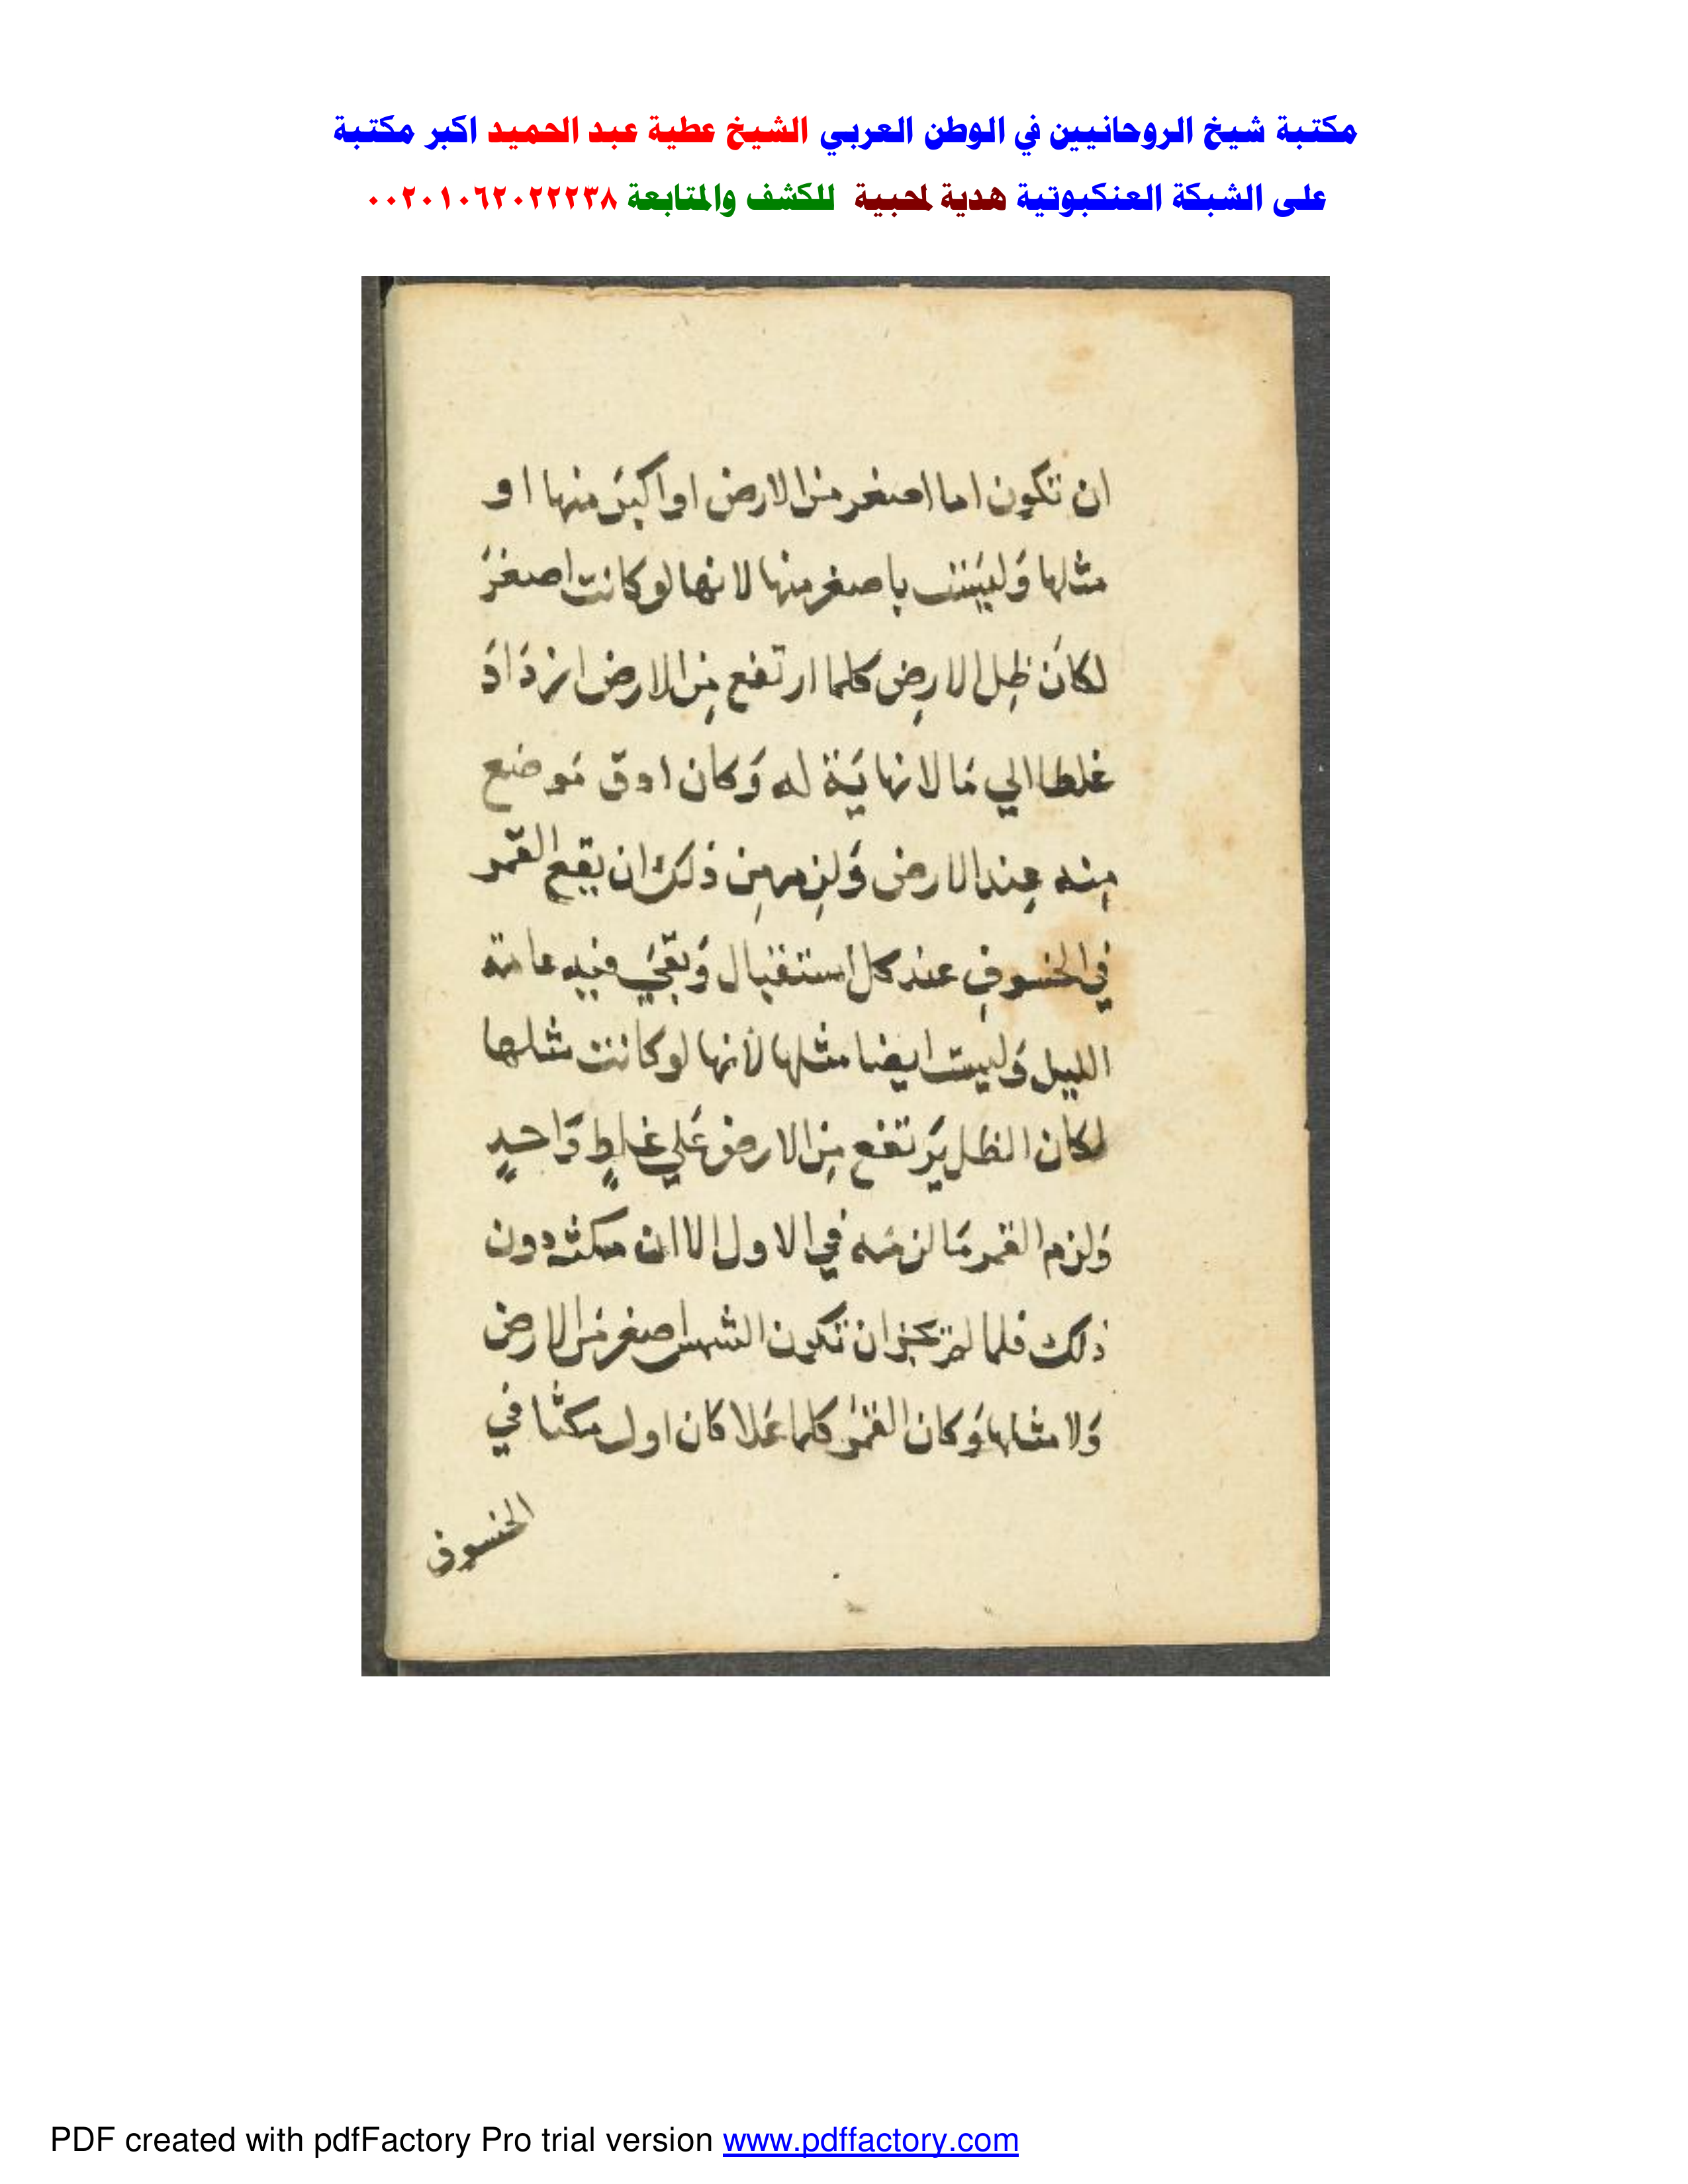 مكتبة شيخ الروحانيين في الوطن العربي الشيخ عطية عبد الحميد اكبر مكتبة
على الشبكة العنكبوتية هدية لمحبية للكشف والمتابعة ٠٠٢٠١٠٦٢٠٢٢٢٣٨
ان تكون اما اصغر من الارض او اكبرَ منها او
مثلها وَليسَت باصغر منها لانها لو كانت اصغرَ
لكانَ ظِل الارضِ كلما ارتفع مِن الارض ازدَادَ
غلطا الي مَا لا نهايَة له وَكان ادق مَوضع
مِنه عِند الارض وَلزِم مِن ذلك ان يقع القمر
في الخسوفِ عند كل استقبال وَبقيَ فيه عامة
الليل وَليست ايضا مثلها لأنها لو كانت مثلها
لكان الظل يَرتفع مِن الارض عَلي غلطٍ وَاحدٍ
وَلزم القمر مَا لزمَه في الاول الا ان مكثه دون
ذلك فلما لم يجز ان تكون الشمس اصغر من الارض
وَلا مثلها وَكان القمَرُ كلما عَلا كان اول مكثا في
الخسوف
PDF created with pdfFactory Pro trial version www.pdffactory.com